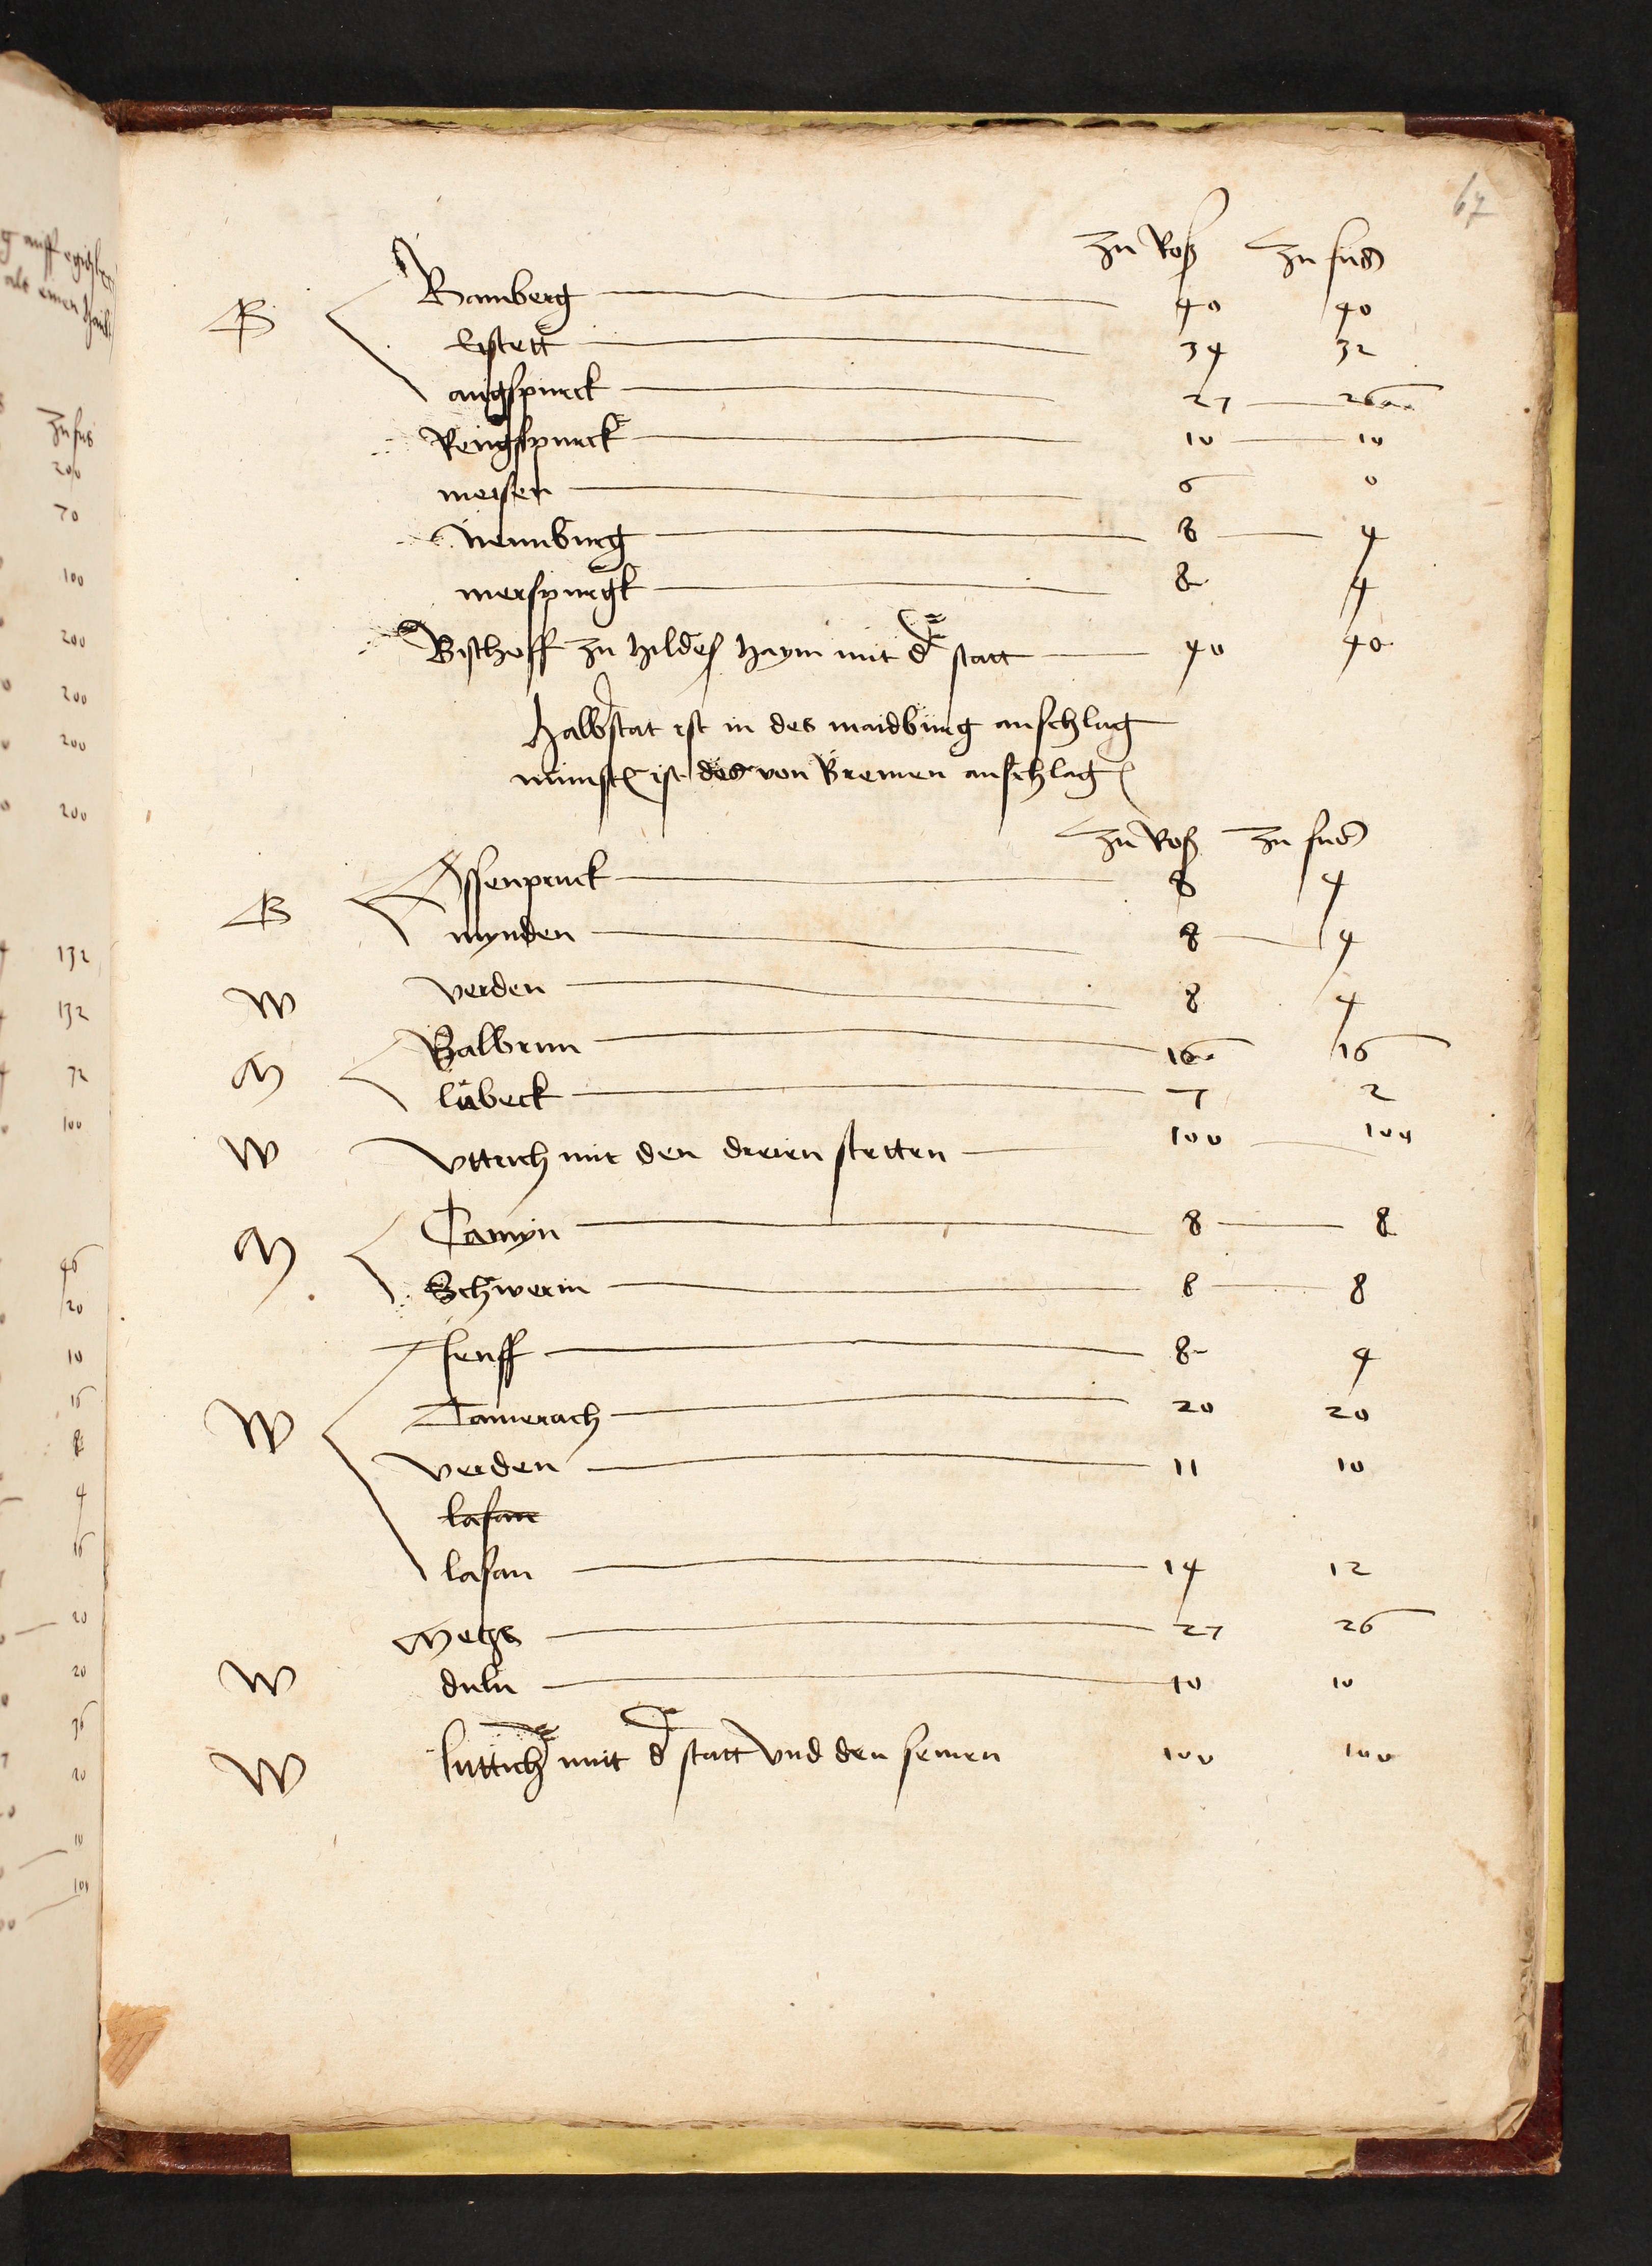 67
zu Roß zu fuß
B Bamberg 40 40
Eystett 34 32
augspurck 27 26
Rengspurck 10 10
meisen 6 0
Neunburg 8 4
merspurgk 8 4
Bischoff zu Hildeß Haym mit d statt 40 40
Halbstat ist in des maidburg anschlag
munst ist des von Bremen anschlag
zu Roß zu fuß
B Assenpruck 8 4
mynden 8 4
W verden 8 4
M Balbrun 16 16
lübeck 7 2
W Vttrich mit den dreien stetten 100 100
M Camyn 8 8
Schwerin 8 8
W Jenff 8 4
Camerach 20 20
Verden 11 10
lasan
lasan 14 12
Metzs 27 26
W duln 10 10
W luttich mit d statt vnd den seinen 100 100
zu fus
200
70
100
200
200
200
200
132
132
72
100
46
20
10
16
8
4
16
20
20
36
20
10
100